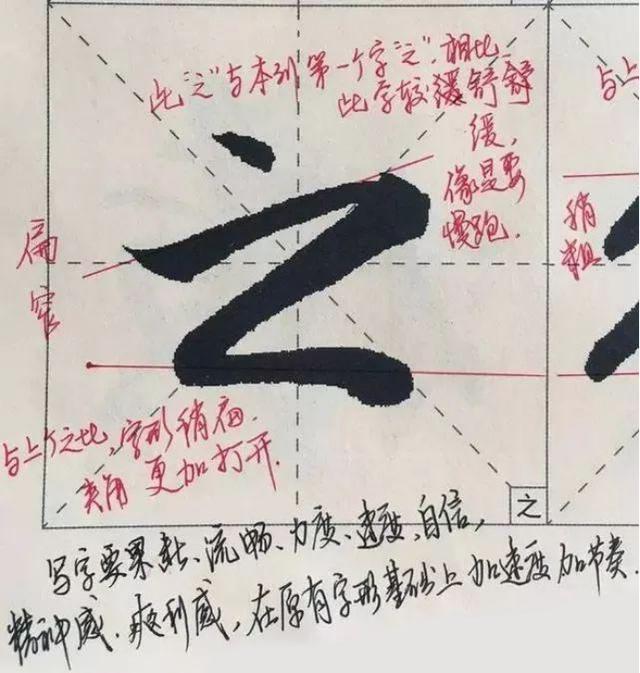 此"之"与本列第一个字"之"相比
此字较缓舒舒
缓，
像是要
慢跑.
之
扁
窄
与上
稍
粗
与上个之比，字形稍扁.
夹角更加打开.
之
写字要果断、流畅、力度、速度、自信，
精神感.爽利感，在原有字形基础上加速度加节奏.